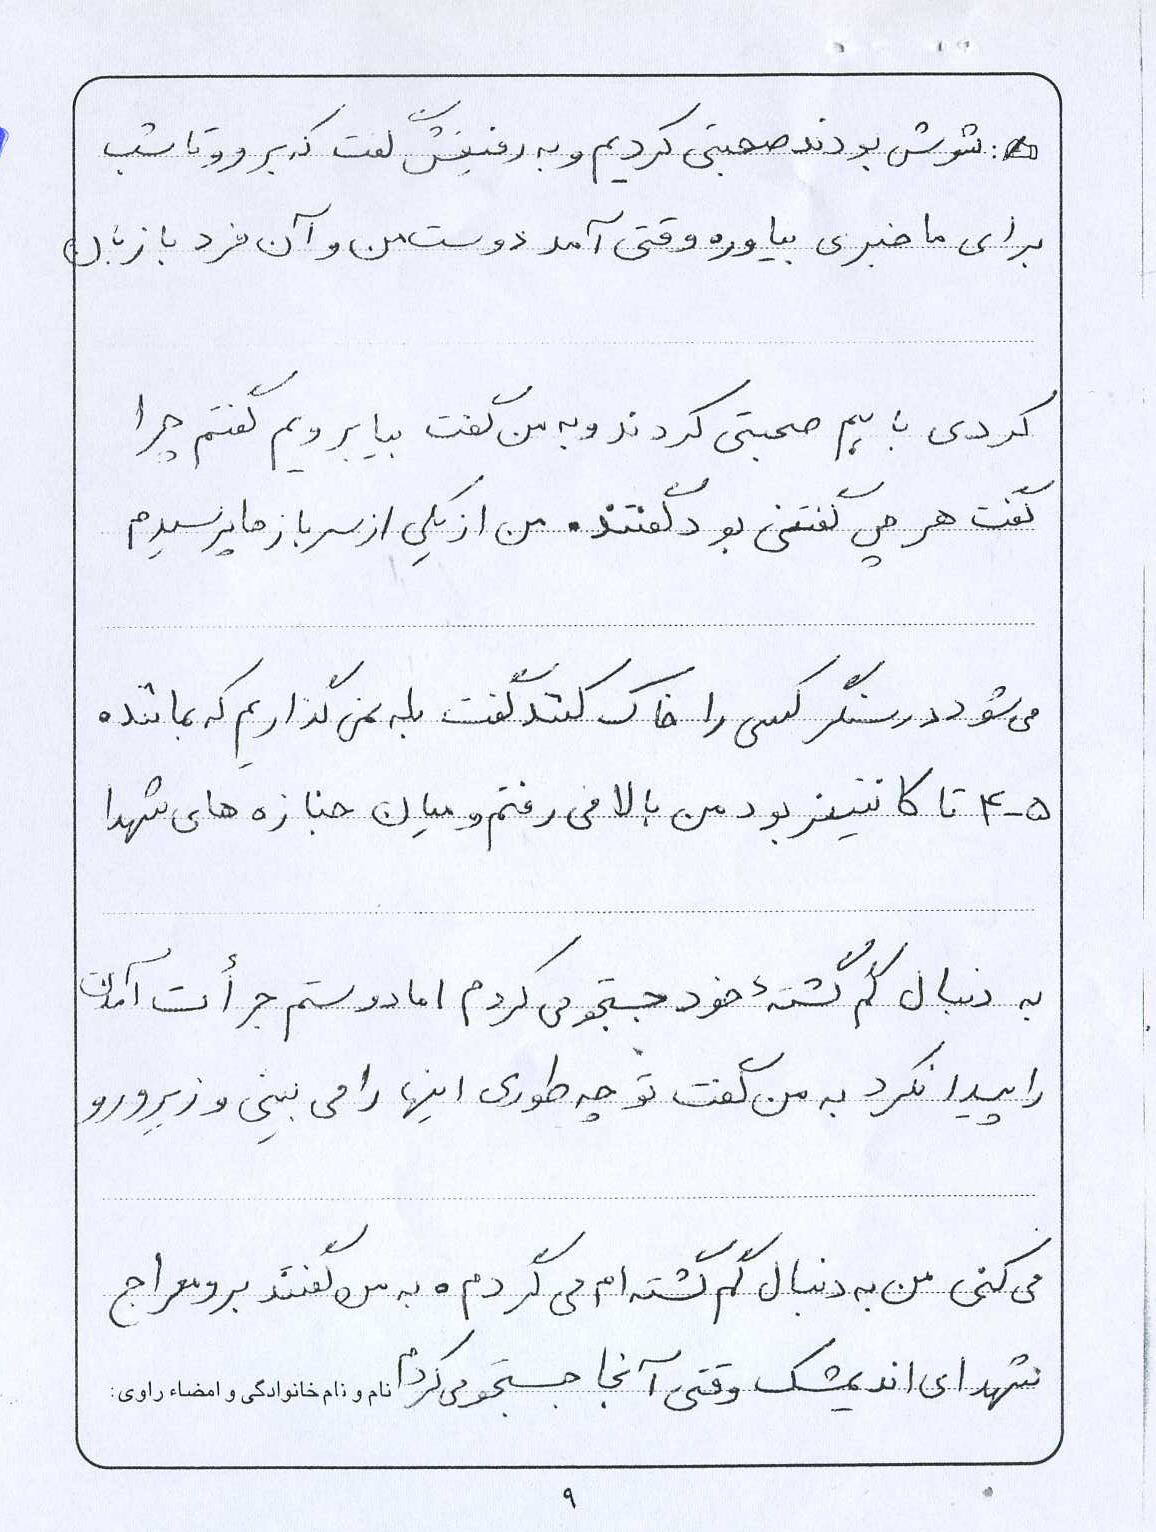 شوش بودند صحبتی کردیم و به رفیقش گفت که برو و تا شب
برای ما خبری بیاوره وقتی آمد دوست من و آن فرد با زبان
کردی با هم صحبتی کردند و به من گفت بیا برویم گفتم چرا
گفت هر چی گفتنی بود گفتند. من از یکی از سربازها پرسیدم
می شود در سنگر کسی را خاک کنند گفت بله نمی گذاریم که بماند
۴-۵ تا کانتینر بود من بالا می رفتم و میان جنازه های شهدا
به دنبال گم گشتهٔ خود جستجو می کردم اما دوستم جرأت آمدن
را پیدا نکرد به من گفت تو چه طوری اینها را می بینی و زیر و رو
می کنی من به دنبال گم گشته ام می گردم. به من گفتند برو معراج
شهدای اندیمشک وقتی آنجا جستجو می کردم
نام و نام خانوادگی و امضاء راوی:
۹